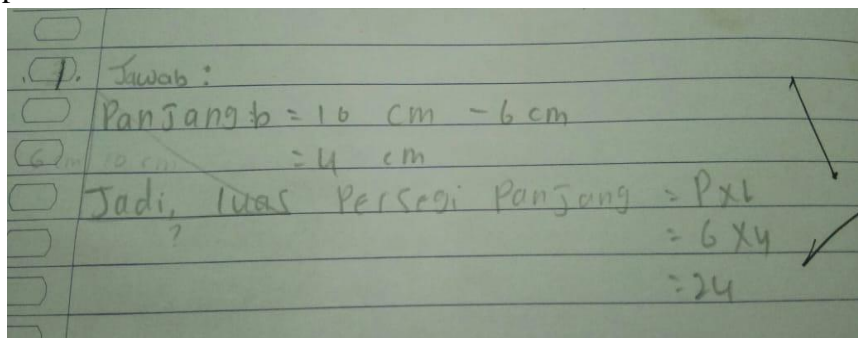 1. Jawab :
Panjang b = 10 cm - 6 cm
6 m 10 cm = 4 cm
Jadi, luas Persegi Panjang = P x l
? = 6 x 4
= 24